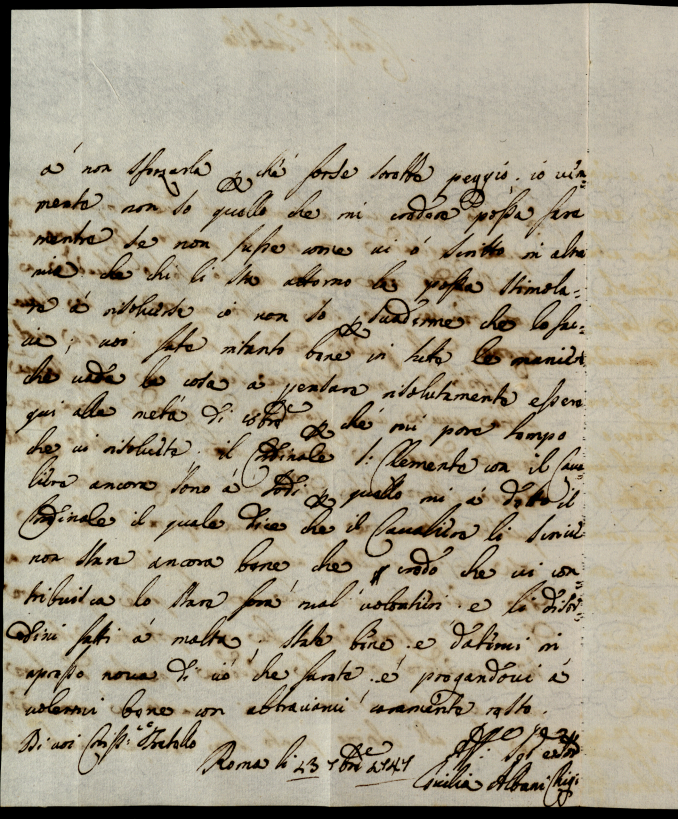 à non sforzarla p che forse sarebbe peggio. io vera
mente non so quello che mi credere possa fare
mentre se non fusse come vi ò scritto in altra
mia che chi li sta attorno la possa stimola=
re à risolverse io non so p suadermi che lo fac=
ia; voi fate intanto bene in tutte le maniere
che vada la cosa a pensare risolutamente essere
qui alla metà di p che mi pare tempo
che vi risolviate. il Cardinale S: Clemente con il Cava
liere ancora sono à p quello mi à detto il
Cardinale il quale dice che il Cavaliere li scrive
non stare ancora bene che credo che vi con
tribuisca lo stare fora mal volentieri e li disor
dini fatti à malta; state bene e datemi in
apresso nova di ciò che farate e pregandovi à
volermi bene con abbraciarvi caramente resto.
Di voi Cariss: Fratello
Roma li 23 7bre 1747
Cecilia Albani Chigi